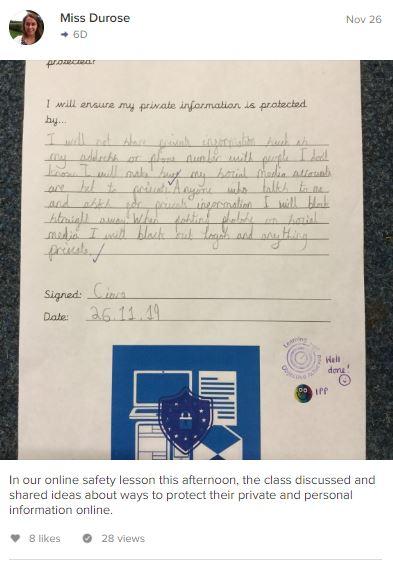 Miss Durose
Nov 26
6D
protected!
I will ensure my private information is protected
by...
I will not share private information such as
my address or phone number with people I don't
know. I will make sure my social media accounts
are set to private. Anyone who talks to me
and asks for private information I will block
straight away. When posting photos on social
media I will black out logos and anything
private.
Signed: Ciara
Date: 26.11.19
Learning
Objective Achieved
Well
done!
IPP
In our online safety lesson this afternoon, the class discussed and
shared ideas about ways to protect their private and personal
information online.
8 likes
28 views